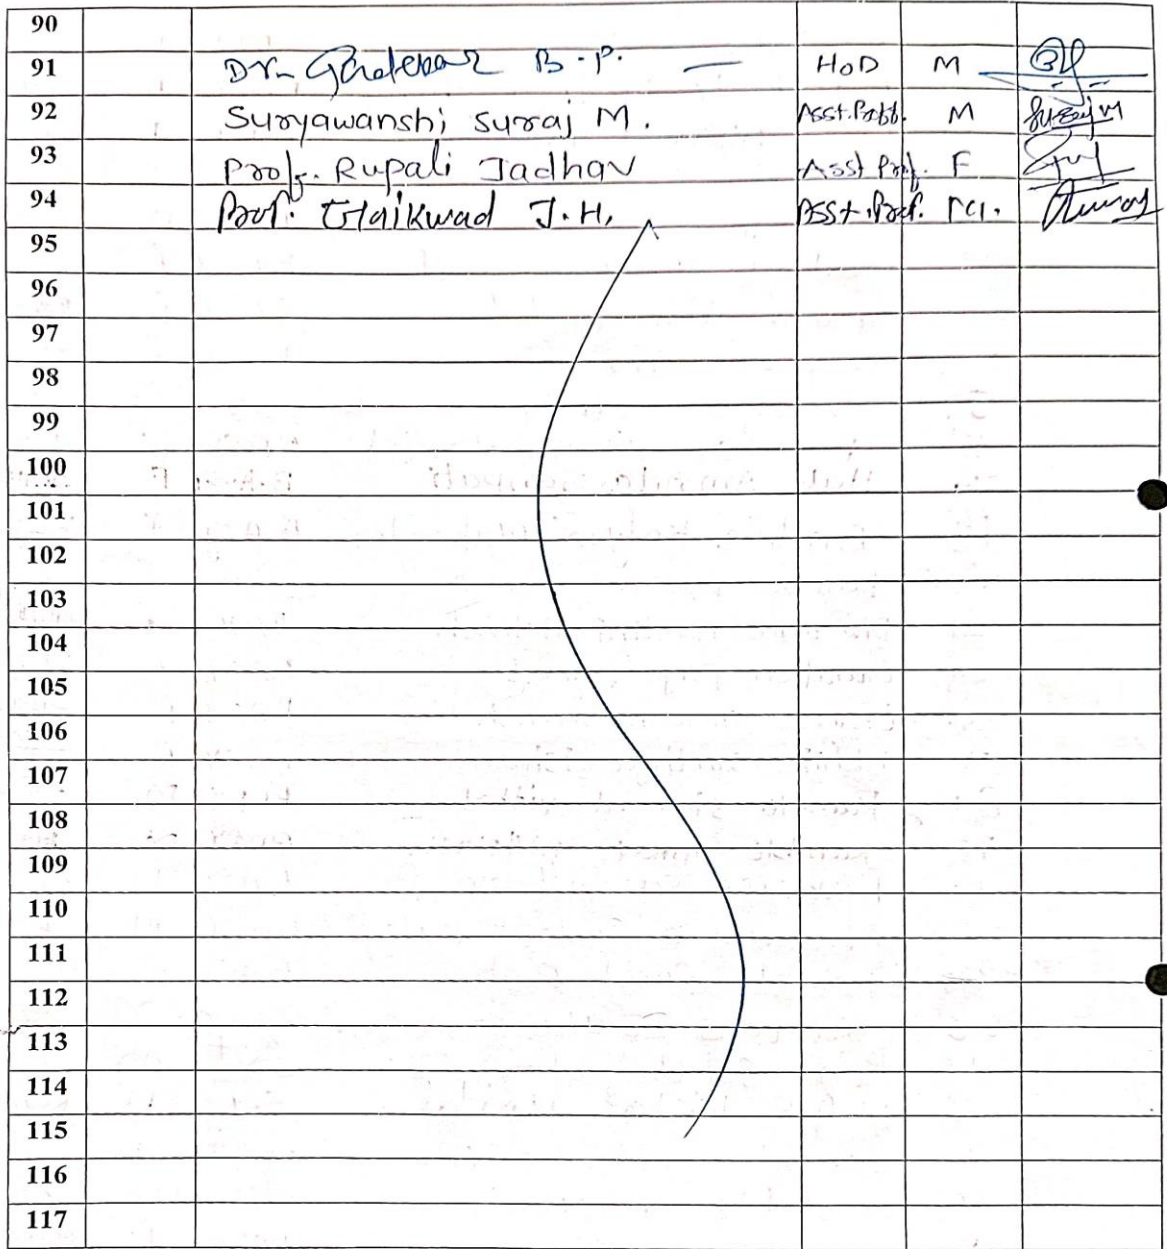 90
91 Dr. B.P. — HoD M
92 Suryawanshi Suraj M. Asst. Proff. M
93 Prof. Rupali Jadhav Asst Prof. F
94 Prof. Gaikwad J.H. Asst. Prof. M.
95
96
97
98
99
100
101
102
103
104
105
106
107
108
109
110
111
112
113
114
115
116
117